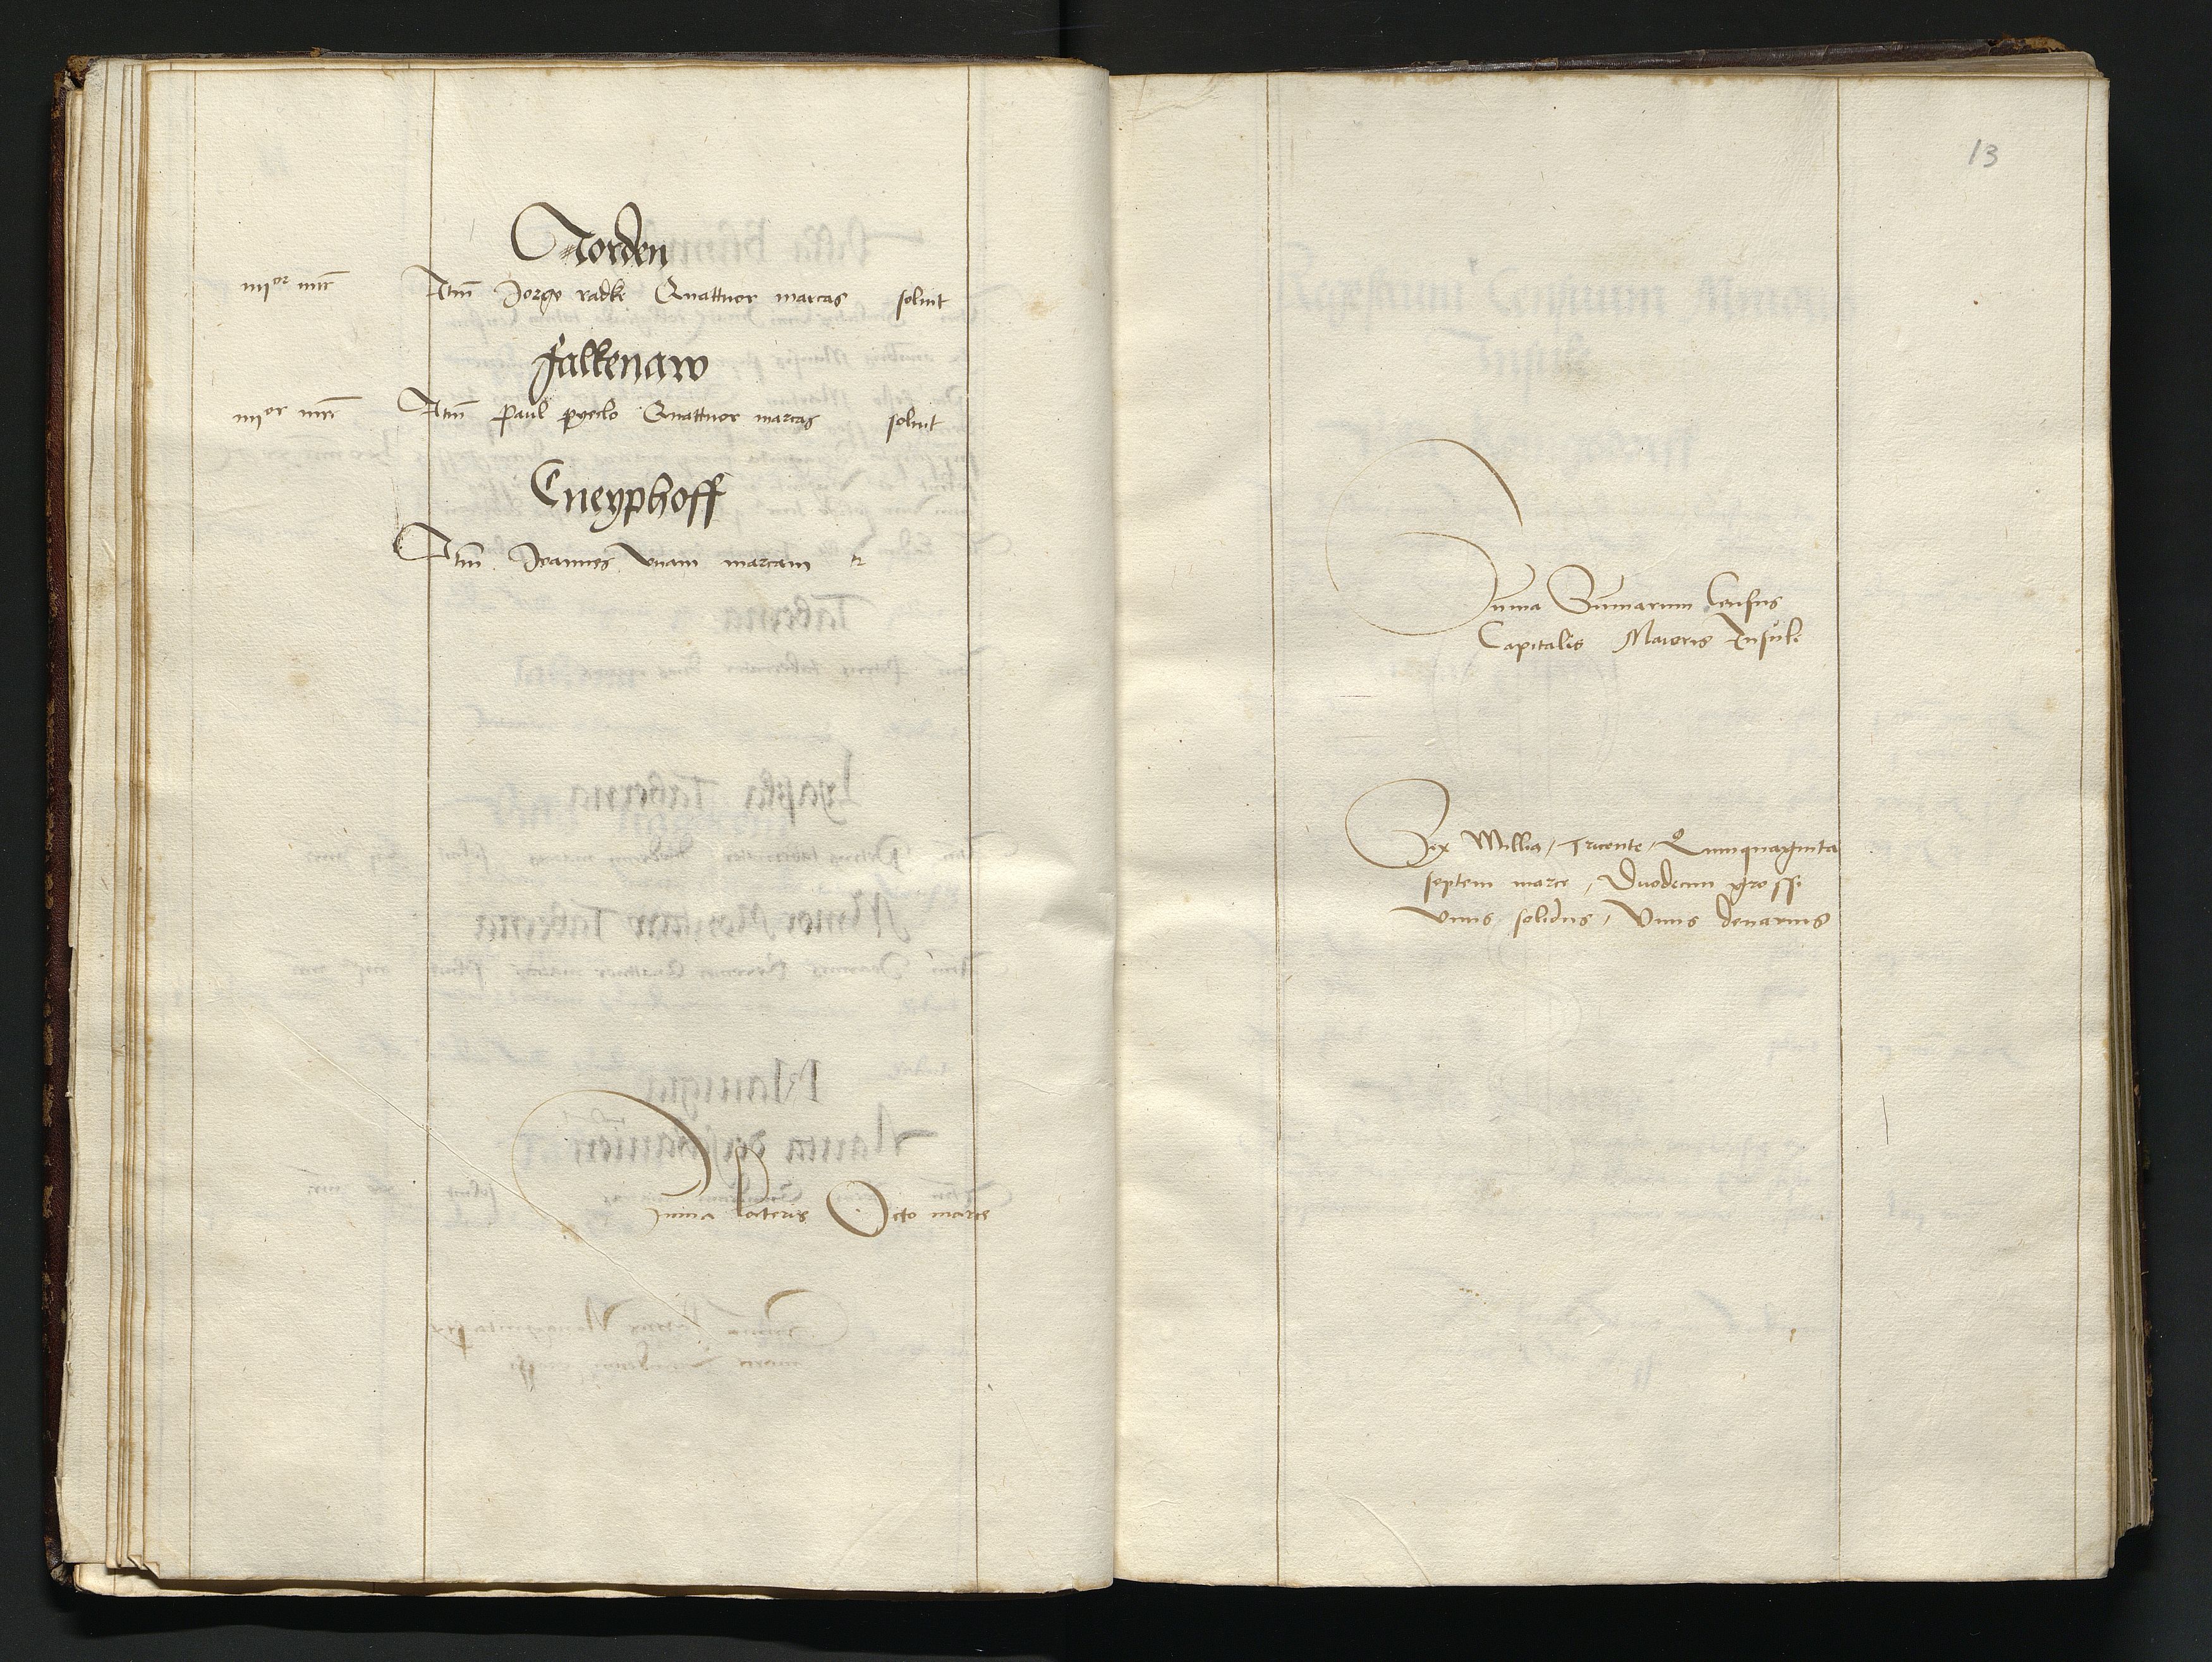 Norden
iiijor mr Itm Jorge radke Quattuor marcas soluit
Falkenaw
iiijor mr Itm Paul Quattuor marcas soluit
Cneyphoff
Itm Joannes Vnam marcam
Suma lateris Octo marce
13
Suma Sumarum Census
Capitalis Maioris Insule
Sex Millia / Tricente / Quinquaginta
septem marce / Duodecim grossi
Vnus solidus / Vnus denarius